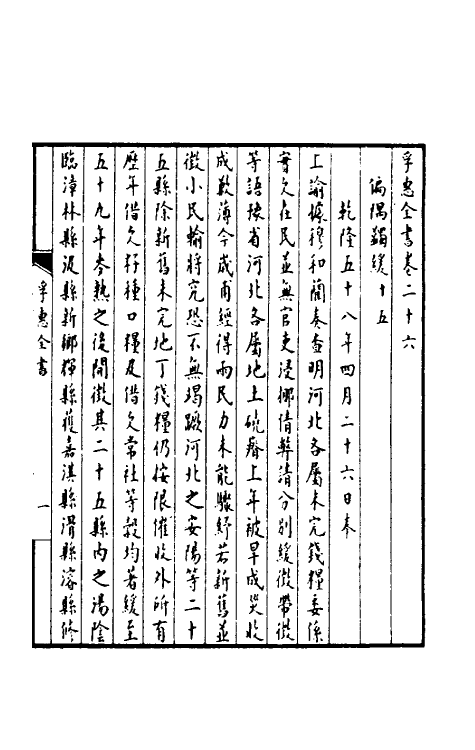 孚惠全書卷二十六
偏隅蠲緩十五
乾隆五十八年四月二十六日奉
上諭據穆和藺奏查明河北各屬未完錢糧委係
實欠在民並無官吏浸挪情弊請分别緩徵帶徵
等語豫省河北各屬地土磽瘠上年被旱成災收
成歉薄今歲甫經得雨民力未能驟紓若新舊並
徵小民輸將究恐不無竭蹶河北之安陽等二十
五縣除新舊未完地丁錢糧仍按限催收外所有
歷年借欠籽種口糧及借欠常社等穀均著緩至
五十九年麥熟之後開徵其二十五縣内之湯陰
臨漳林縣汲縣新鄉輝縣獲嘉淇縣滑縣濬縣修
孚惠全書
一